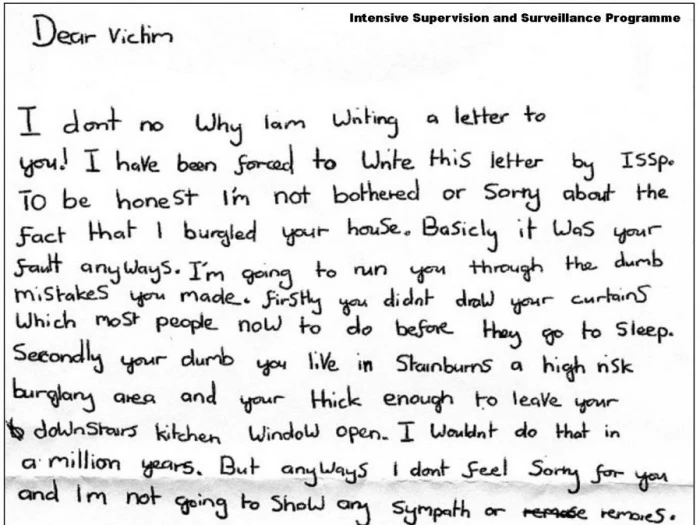 Intensive Supervision and Surveillance Programme
Dear Victim
I dont no Why Iam Writing a letter to
you! I have been forced to Write this letter by ISSp.
To be honest I'm not bothered or Sorry about the
fact that I burgled your house. Basicly it was your
fault anyways. I'm going to run you through the dumb
mistakes you made. firstly you didnt draw your curtains
Which most people now to do before they go to sleep.
Secondly your dumb you live in Stainburns a high risk
burglary area and your thick enough to leave your
downstairs kitchen Window open. I wouldnt do that in
a million years. But anyways I dont feel Sorry for you
and Im not going to show any sympath or remose remores.